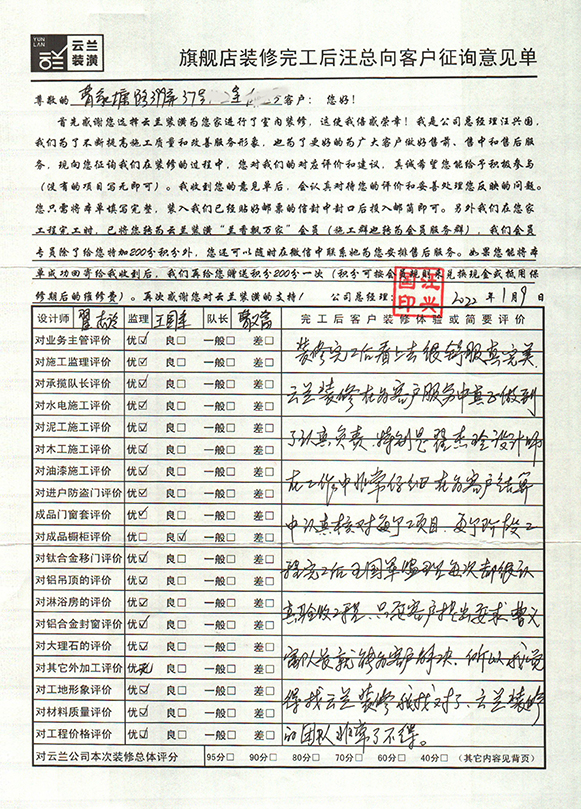 YUN LAN 云兰装潢
旗舰店装修完工后汪总向客户征询意见单
尊敬的 37号 客户：您好！
首先感谢您选择云兰装潢为您家进行了室内装修，这使我倍感荣幸！我是公司总经理汪兴国，
我们为了不断提高施工质量和改善服务形象，也为了更好的为广大客户做好售前、售中和售后服
务，现向您征询我们在装修的过程中，您对我们的对应评价和建议，真诚希望您能给予积极参与
（没有的项目写无即可）。我收到您的意见单后，会认真对待您的评价和妥善处理您反映的问题。
您只需将本单填写完整，装入我们已经贴好邮票的信封中封口后投入邮筒即可。另外我们在您家
工程完工时，已将您转为云兰装潢“兰香飘万家”会员（施工群也转为会员服务群），我们会员
专员除了给您特加200分积分外，您还可以随时在微信中联系她为您安排售后服务。如果您能将本
单成功回寄给我收到后，我们再给您赠送积分200分一次（积分可按会员规则来兑换现金或抵用保
修期后的维修费）。再次感谢您对云兰装潢的支持！ 公司总经理： 汪兴国印 2022年1月9日
设计师 翟杰玲 监理 王国军 队长 曹家富 完工后客户装修体验或简要评价
对业务主管评价 优☑ 良□ 一般□ 差□
对施工监理评价 优☑ 良□ 一般□ 差□
对承揽队长评价 优☑ 良□ 一般□ 差□
对水电施工评价 优☑ 良□ 一般□ 差□
对泥工施工评价 优☑ 良□ 一般□ 差□
对木工施工评价 优☑ 良□ 一般□ 差□
对油漆施工评价 优☑ 良□ 一般□ 差□
对进户防盗门评价 优☑ 良□ 一般□ 差□
成品门窗套评价 优☑ 良□ 一般□ 差□
对成品橱柜评价 优□ 良☑ 一般□ 差□
对钛合金移门评价 优☑ 良□ 一般□ 差□
对铝吊顶的评价 优☑ 良□ 一般□ 差□
对淋浴房的评价 优☑ 良□ 一般□ 差□
对铝合金封窗评价 优☑ 良□ 一般□ 差□
对大理石的评价 优☑ 良□ 一般□ 差□
对其它外加工评价 优无 良□ 一般□ 差□
对工地形象评价 优☑ 良□ 一般□ 差□
对材料质量评价 优☑ 良□ 一般□ 差□
对工程价格评价 优☑ 良□ 一般□ 差□
装修完工后看上去很舒服真完美
云兰装修在为客户服务中真正做到
了认真负责，特别是翟杰玲设计师
在工作中非常仔细在为客户结算
中认真核对每个项目，每个阶段工
程完工后王国军监理每次都很认
真验收工程，只要客户提出要求曹家
富队长就能为客户解决，所以我觉
得找云兰装修我找对了，云兰装修
的团队非常了不得。
对云兰公司本次装修总体评分 95分□ 90分□ 80分□ 70分□ 60分□ 40分□ （其它内容见背页）